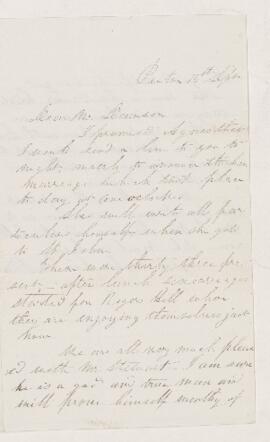 16th
Dear Mr.
I promised Agnes that
I would send a line to you to
night, merely to announce the
marriage which took place
to day at one o'clock.
She will write all par
ticulars herself when she gets
to St John.
There were thirty three pre
sent — after lunch six carriages
started for Hill where
they are enjoying themselves just
now.
We are all very much pleas
ed with Mr. Stewart. I am sure
he is a good and true man and
will prove himself worthy of